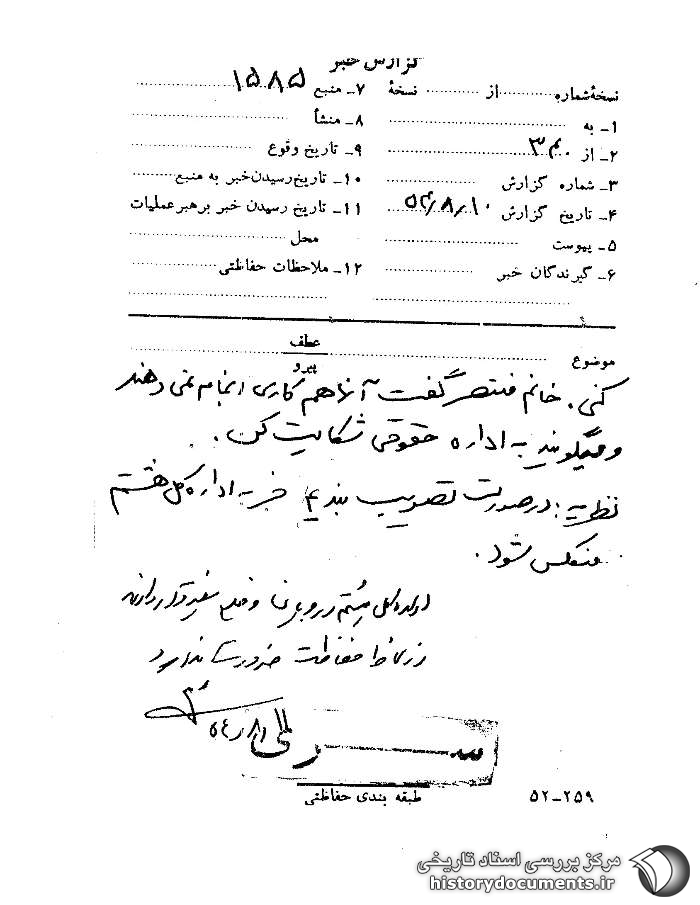 گزارش خبر
نسخهٔ شماره از نسخهٔ
۷ـ منبع ۱۵۸۵
۱ـ به
۸ـ منشأ
۲ـ از ۳۴۰
۹ـ تاریخ وقوع
۳ـ شماره گزارش
۱۰ـ تاریخ رسیدن خبر به منبع
۴ـ تاریخ گزارش ۵۴/۸/۱۰
۱۱ـ تاریخ رسیدن خبر برهبر عملیات
۵ـ پیوست
محل
۶ـ گیرندگان خبر
۱۲ـ ملاحظات حفاظتی
موضوع
عطف
پیرو
کنی. خانم گفت آنها هم کاری انجام نمی دهند
و میگویند به اداره حقوقی شکایت کن.
نظریه: در صورت تصویب خبر به اداره کل هشتم
منعکس شود.
اداره کل هشتم
حفاظت ضرورت ندارد
سری
طبقه بندی حفاظتی
۲۵۹ـ۵۲
مرکز بررسی اسناد تاریخی
historydocuments.ir